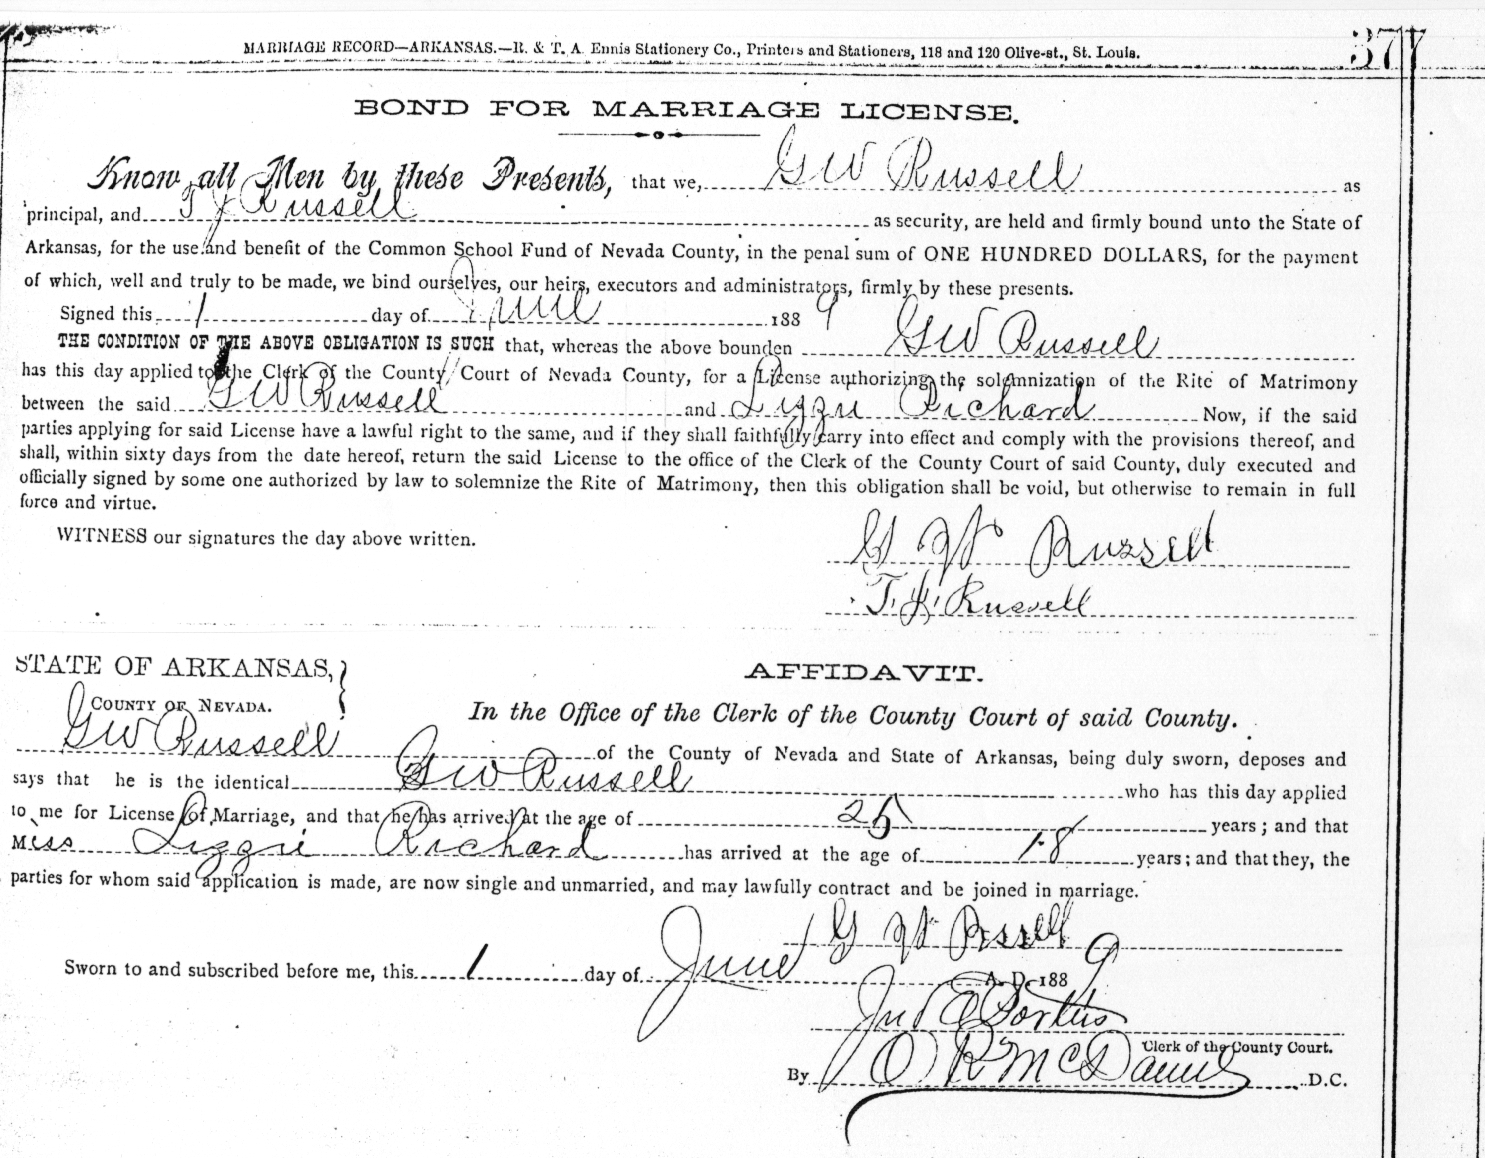 MARRIAGE RECORD—ARKANSAS.—R. & T. A. Ennis Stationery Co., Printers and Stationers, 118 and 120 Olive-st., St. Louis.
377
BOND FOR MARRIAGE LICENSE.
Know all Men by these Presents, that we, G W Russell as
principal, and T J Russell as security, are held and firmly bound unto the State of
Arkansas, for the use and benefit of the Common School Fund of Nevada County, in the penal sum of ONE HUNDRED DOLLARS, for the payment
of which, well and truly to be made, we bind ourselves, our heirs, executors and administrators, firmly by these presents.
Signed this 1 day of June 1889
THE CONDITION OF THE ABOVE OBLIGATION IS SUCH that, whereas the above bounden G W Russell
has this day applied to the Clerk of the County Court of Nevada County, for a License authorizing the solemnization of the Rite of Matrimony
between the said G W Russell and Lizzie Richard Now, if the said
parties applying for said License have a lawful right to the same, and if they shall faithfully carry into effect and comply with the provisions thereof, and
shall, within sixty days from the date hereof, return the said License to the office of the Clerk of the County Court of said County, duly executed and
officially signed by some one authorized by law to solemnize the Rite of Matrimony, then this obligation shall be void, but otherwise to remain in full
force and virtue.
WITNESS our signatures the day above written.
G W Russell
T. J. Russell
STATE OF ARKANSAS, }
COUNTY OF NEVADA.
AFFIDAVIT.
In the Office of the Clerk of the County Court of said County.
G W Russell of the County of Nevada and State of Arkansas, being duly sworn, deposes and
says that he is the identical G W Russell who has this day applied
to me for License of Marriage, and that he has arrived at the age of 25 years; and that
Miss Lizzie Richard has arrived at the age of 18 years; and that they, the
parties for whom said application is made, are now single and unmarried, and may lawfully contract and be joined in marriage.
G W Russell
Sworn to and subscribed before me, this 1 day of June A. D. 1889
Clerk of the County Court.
By O R McDaniel D.C.